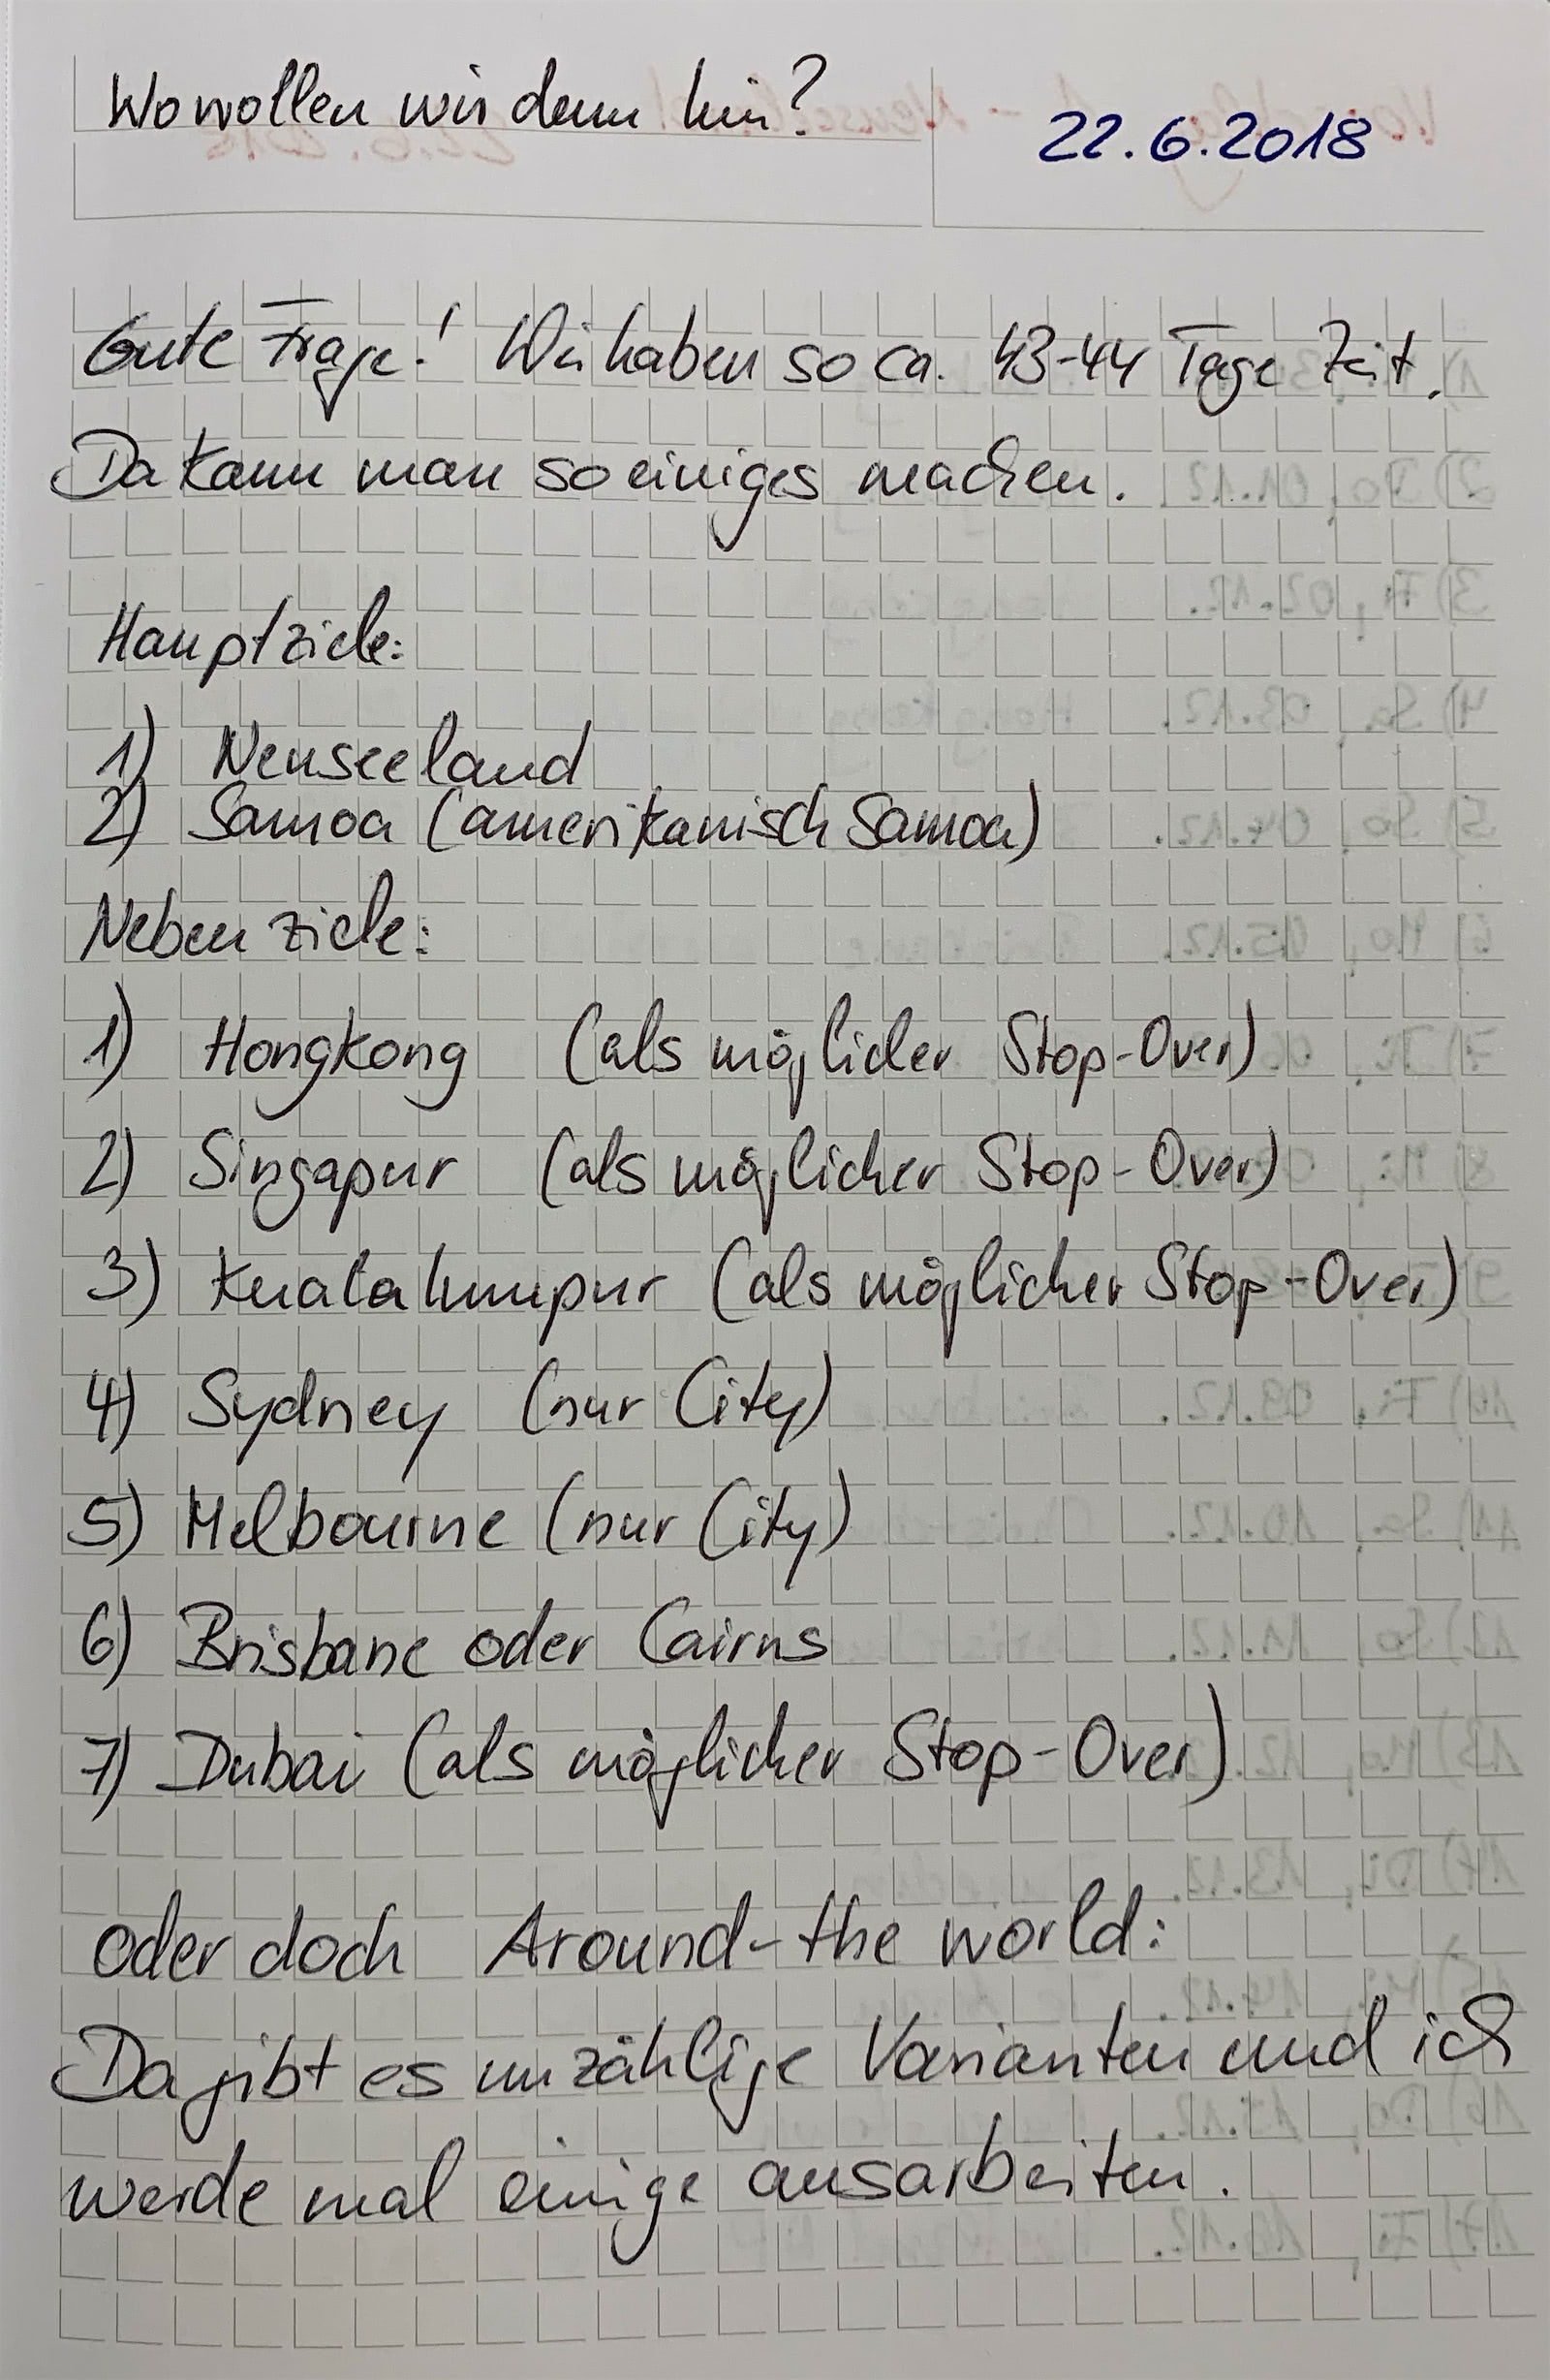 Wo wollen wir denn hin?
22.6.2018
Gute Frage! Wir haben so ca. 43-44 Tage Zeit.
Da kann man so einiges machen.
Hauptziele:
1) Neuseeland
2) Samoa (amerikanisch Samoa)
Nebenziele:
1) Hongkong (als möglicher Stop-Over)
2) Singapur (als möglicher Stop-Over)
3) Kuala lumpur (als möglicher Stop-Over)
4) Sydney (nur City)
5) Melbourne (nur City)
6) Brisbane oder Cairns
7) Dubai (als möglicher Stop-Over)
oder doch Around-the world:
Da gibt es unzählige Varianten und ich
werde mal einige ausarbeiten.